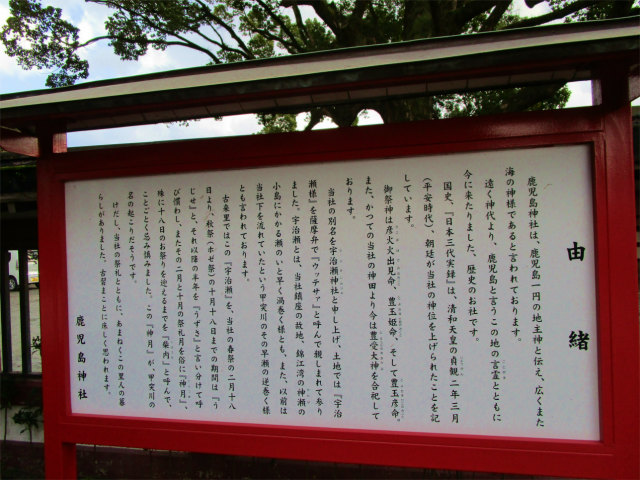 由緒
鹿児島神社は、鹿児島一円の地主神と伝え、広くまた
海の神様であると言われております。
遠く神代より、鹿児島と言うこの地の言霊とともに
今に来たりました、歴史のお社です。
国史、『日本三代実録』は、清和天皇の貞観二年三月
(平安時代)、朝廷が当社の神位を上げられたことを記
しています。
御祭神は彦火火出見命、豊玉姫命、そして豊玉彦命。
また、かつての当社の神田より今は豊受大神を合祀して
おります。
当社の別名を宇治瀬神社と申し上げ、土地では『宇治
瀬様』を薩摩弁で『ウッチサァ』と呼んで親しまれて参り
ました。宇治瀬とは、当社鎮座の故地、錦江湾の神瀬の
小島にかかる瀬のいと早く渦巻く様とも、また、以前は
当社下を流れていたという甲突川のその早瀬の逆巻く様
とも言われております。
古来里ではこの『宇治瀬』を、当社の春祭の二月十八
日より、秋祭(ホゼ祭)の十月十八日までの期間は『う
じせ』と、それ以降の半年を『うずき』と言い分けて呼
び慣わし、またその二月と十月の祭礼月を俗に『神月』、
殊に十八日のお祭りを迎えるまでを『柴内』と呼んで、
ことごとく忌み慎みました。この『神月』が、甲突川の
名の起こりだそうです。
けだし、当社の祭礼とともに、あまねくこの里人の暮
らしがありました。古賛まことに床しく思われます。
鹿児島神社